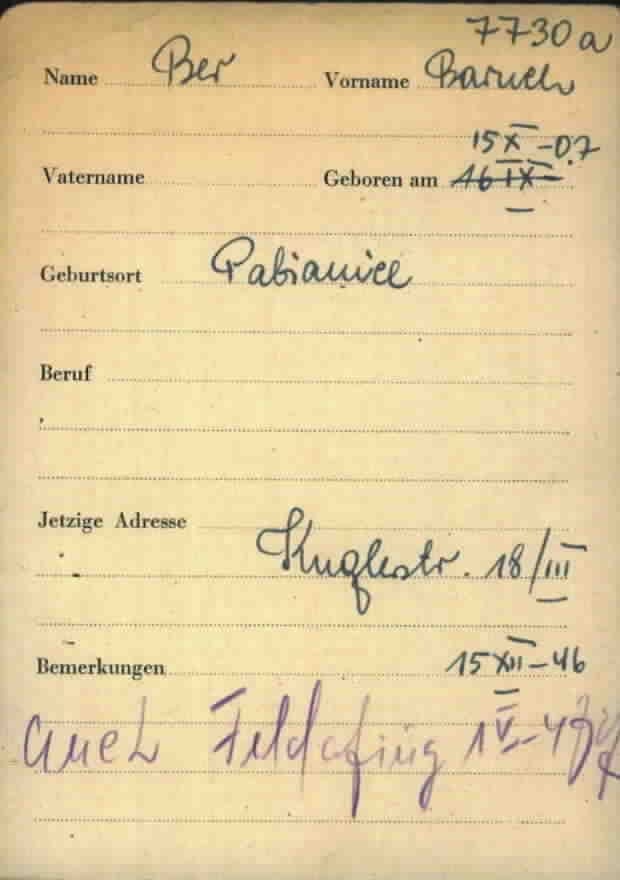 7730a
Name Ber Vorname Baruch
15 X - 07
Vatername Geboren am 16 IX
Geburtsort Pabianice
Beruf
Jetzige Adresse
Kuglerstr. 18/III
Bemerkungen 15 XII - 46
auch Feldafing 1 V - 4